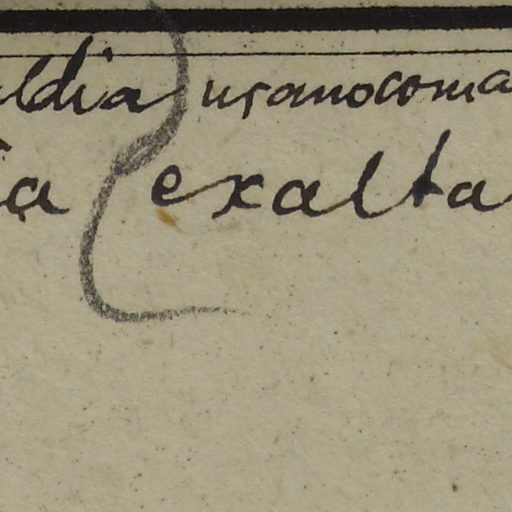 ldia uranocoma
ia exalta